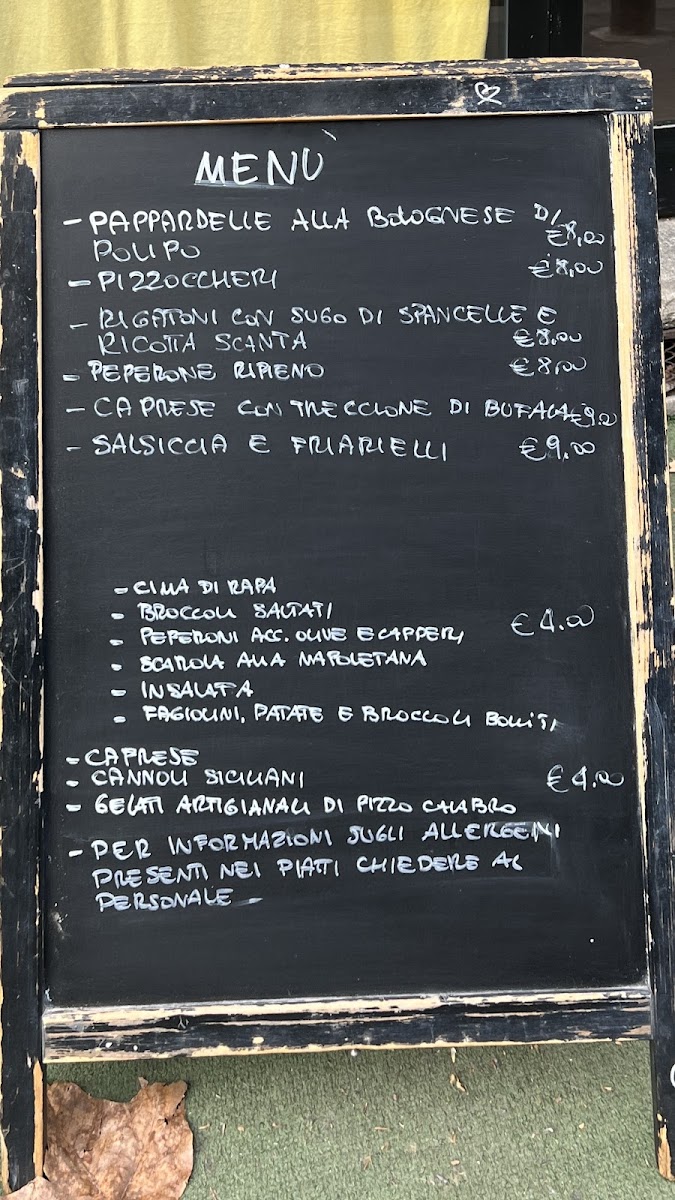 MENÙ
- PAPPARDELLE ALLA BOLOGNESE DI
POLIPO €8,00
- PIZZOCCHERI €8,00
- RIGATONI CON SUGO DI SPANCELLE E
RICOTTA SCANTA €8,00
- PEPERONE RIPIENO €8,00
- CAPRESE CON TRECCIONE DI BUFALA €9,00
- SALSICCIA E FRIARIELLI €9,00
- CIMA DI RAPA
- BROCCOLI SALTATI
- PEPERONI ACC. OLIVE E CAPPERI €4.00
- SCAROLA ALLA NAPOLETANA
- INSALATA
- FAGIOLINI, PATATE E BROCCOLI BOLLITI
- CAPRESE
- CANNOLI SICILIANI €4.00
- GELATI ARTIGIANALI DI PIZZO CALABRO
- PER INFORMAZIONI SUGLI ALLERGENI
PRESENTI NEI PIATTI CHIEDERE AL
PERSONALE